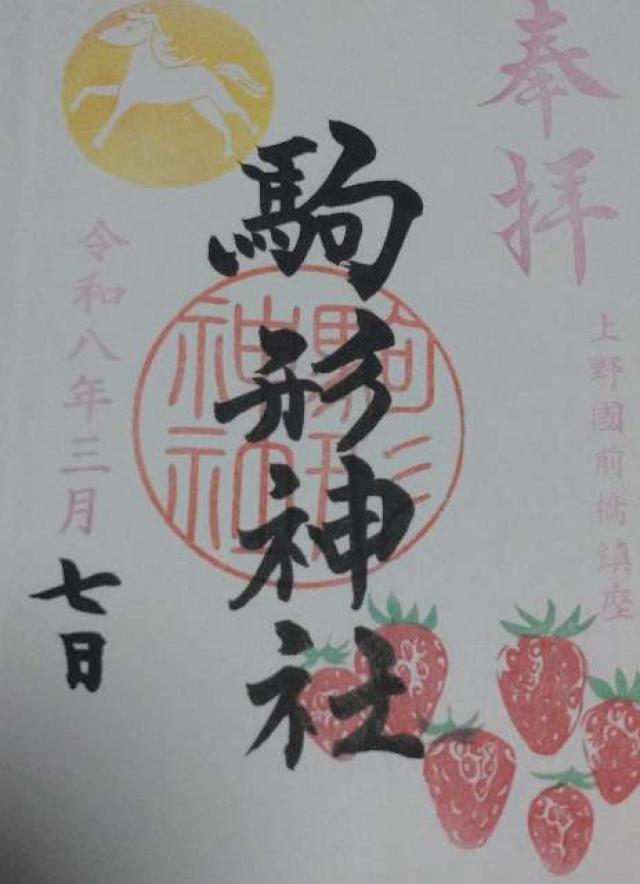 奉拝
上野國前橋鎮座
駒形神社
駒形
神社
令和八年三月
七日